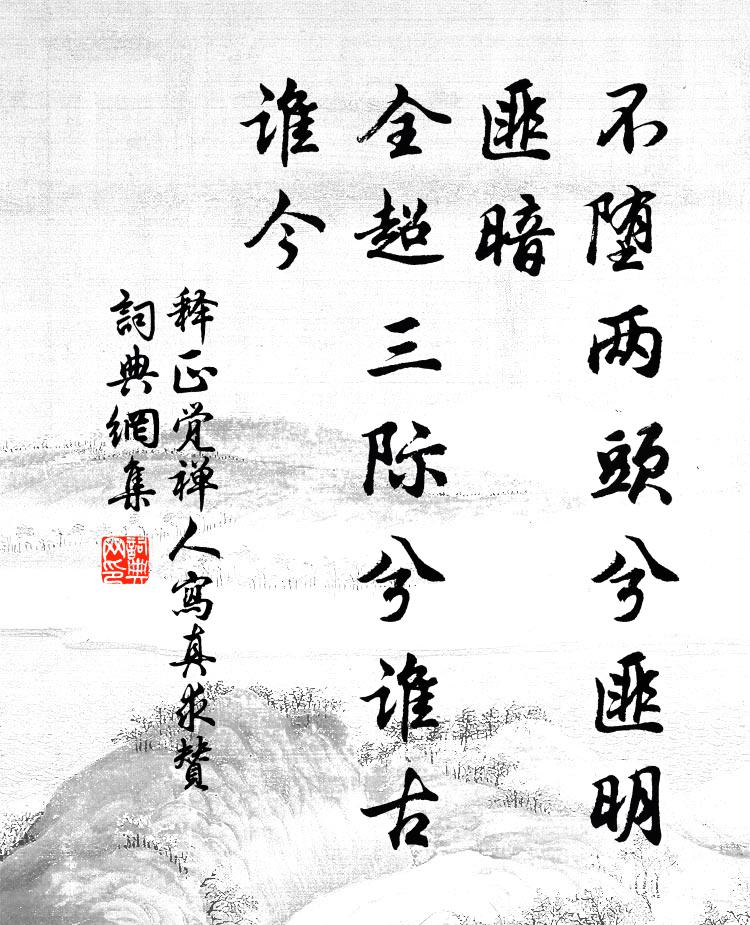 不堕两頭兮匪明
匪暗
全超三际兮谁古
谁今
释正覚禅人寫真求賛
詞典網集
詞典網印